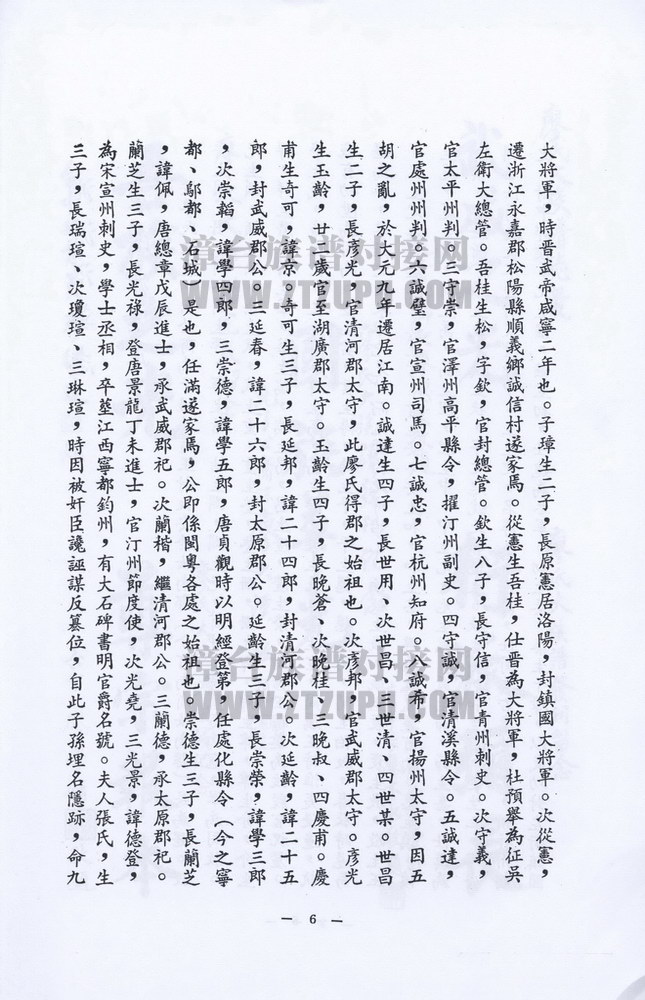 大將軍，時晉武帝咸寧二年也。子璋生二子，長原憲居洛陽，封鎮國大將軍。次從憲，
遷浙江永嘉郡松陽縣順義鄉誠信村遂家焉。從憲生吾桂，仕晉為大將軍，杜預舉為征吳
左衛大總管。吾桂生松，字欽，官封總管。欽生八子，長守信，官青州刺史。次守義，
官太平州判。三守崇，官澤州高平縣令，擢汀州副史。四守誠，官清溪縣令。五誠達，
官處州州判。六誠璧，官宣州司馬。七誠忠，官杭州知府。八誠希，官揚州太守，因五
胡之亂，於大元九年遷居江南。誠達生四子，長世用、次世昌、三世清、四世某。世昌
生二子，長彥光，官清河郡太守，此廖氏得郡之始祖也。次彥邦，官武威郡太守。彥光
生玉齡，廿二歲官至湖廣郡太守。玉齡生四子，長晚蒼、次晚桂、三晚叔、四慶甫。慶
甫生奇可，諱京。奇可生三子，長延邦，諱二十四郎，封清河郡公。次延齡，諱二十五
郎，封武威郡公。三延春，諱二十六郎，封太原郡公。延齡生三子，長崇榮，諱學三郎
，次崇韜，諱學四郎，三崇德，諱學五郎，唐貞觀時以明經登第，任處化縣令（今之寧
都、鄔都、石城）是也，任滿遂家焉，公即係閩粵各處之始祖也。崇德生三子，長蘭芝
，諱佩，唐總章戊辰進士，承武威郡祀。次蘭楷，繼清河郡公。三蘭德，承太原郡祀。
蘭芝生三子，長光祿，登唐景龍丁未進士，官汀州節度使，次光堯，三光景，諱德登，
為宋宣州刺史，學士丞相，卒塟江西寧都鈞州，有大石碑書明官爵名號。夫人張氏，生
三子，長瑞瑄、次瓊瑄、三琳瑄，時因被奸臣讒誣謀反篡位，自此子孫埋名隱跡，命九
— 6 —
漳台族谱对接网
WWW.ZTZUPU.COM
漳台族谱对接网
WWW.ZTZUPU.COM